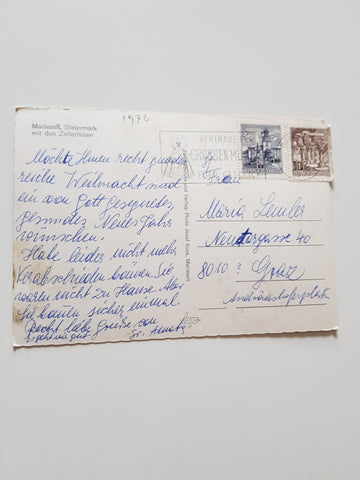 1970
Mariazell, Steiermark
mit den Zellerhüten
Möchte Ihnen recht gnaden
reiche Weihnacht und
ein von Gott gesegnetes
gesundes Neues Jahr
wünschen.
Habe leider nicht mehr
Verabschieden können. Sie
waren nicht zu Hause. Aber
Sie kommen sicher einmal.
Recht liebe Grüße von
Sr.
VERTRAUE
GROSSEN
Verlag Photo Josef Kuss, Mariazell
Frau
Maria
Neutorgasse 40
8010 Graz
Andreashoferplatz